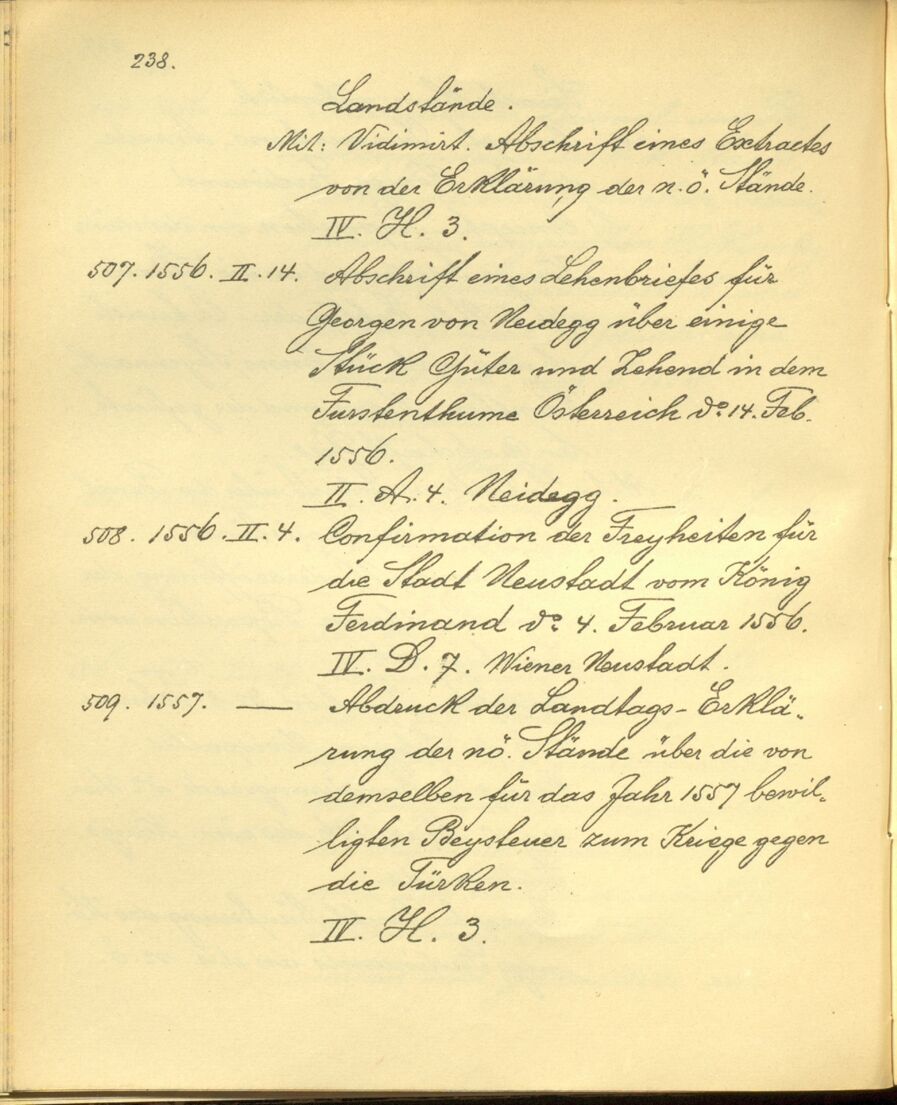 238.
Landstände.
Mit: Vidimirt. Abschrift eines Extractes
von der Erklärung der n.ö. Stände.
IV. H. 3.
507. 1556. II. 14. Abschrift eines Lehenbriefes für
Georgen von Neidegg über einige
Stück Güter und Zehend in dem
Furstenthume Österreich do. 14. Feb.
1556.
II. A. 4. Neidegg.
508. 1556. II. 4. Confirmation der Freyheiten für
die Stadt Neustadt vom König
Ferdinand do. 4. Februar 1556.
IV. D. 7. Wiener Neustadt.
509. 1557. — Abdruck der Landtags-Erklä-
rung der nö. Stände über die von
demselben für das Jahr 1557 bewil-
ligten Beysteuer zum Kriege gegen
die Türken.
IV. H. 3.